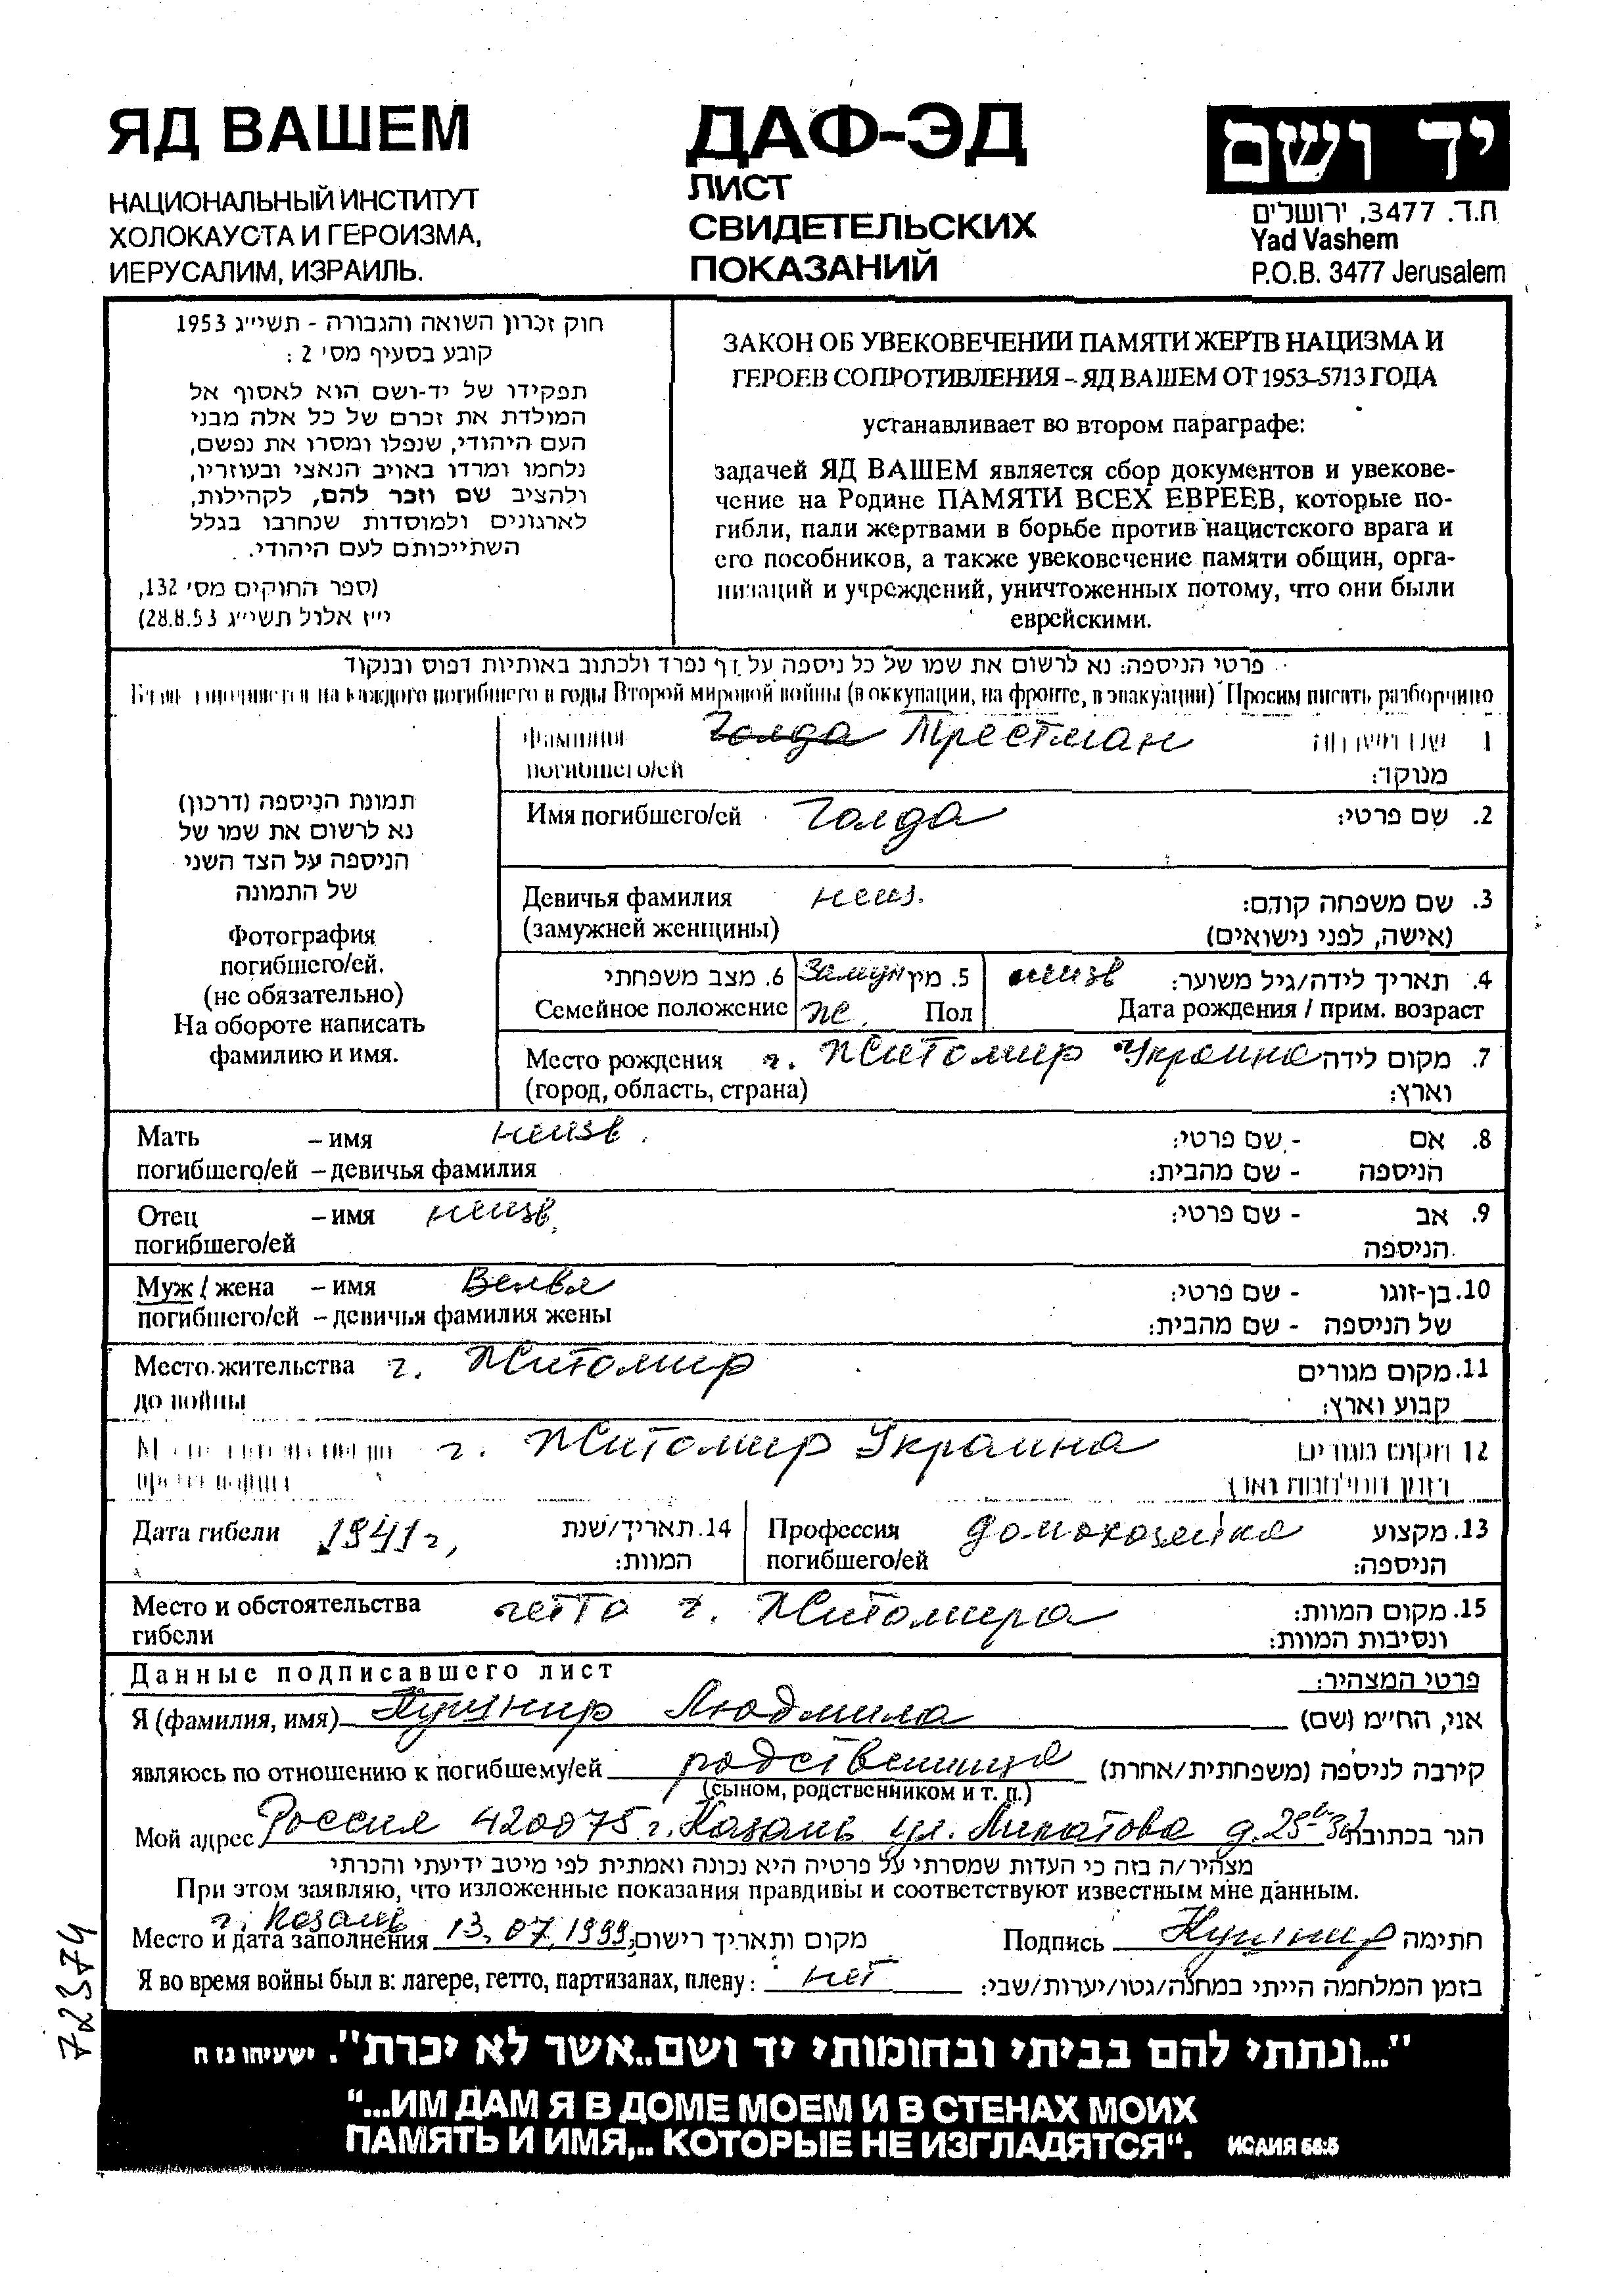 ЯД ВАШЕМ
НАЦИОНАЛЬНЫЙ ИНСТИТУТ
ХОЛОКАУСТА И ГЕРОИЗМА,
ИЕРУСАЛИМ, ИЗРАИЛЬ.
ДАФ-ЭД
ЛИСТ
СВИДЕТЕЛЬСКИХ
ПОКАЗАНИЙ
יד ושם
ת.ד. 3477, ירושלים
Yad Vashem
P.O.B. 3477 Jerusalem
חוק זכרון השואה והגבורה - תשי״ג 1953
קובע בסעיף מס׳ 2 :
תפקידו של יד-ושם הוא לאסוף אל
המולדת את זכרם של כל אלה מבני
העם היהודי, שנפלו ומסרו את נפשם,
נלחמו ומרדו באויב הנאצי ובעוזריו,
ולהציב שם וזכר להם, לקהילות,
לארגונים ולמוסדות שנחרבו בגלל
השתייכותם לעם היהודי.
(ספר החוקים מס׳ 132,
י״ז אלול תשי״ג 28.8.53)
ЗАКОН ОБ УВЕКОВЕЧЕНИИ ПАМЯТИ ЖЕРТВ НАЦИЗМА И
ГЕРОЕВ СОПРОТИВЛЕНИЯ – ЯД ВАШЕМ ОТ 1953–5713 ГОДА
устанавливает во втором параграфе:
задачей ЯД ВАШЕМ является сбор документов и увекове-
чение на Родине ПАМЯТИ ВСЕХ ЕВРЕЕВ, которые по-
гибли, пали жертвами в борьбе против нацистского врага и
его пособников, а также увековечение памяти общин, орга-
низаций и учреждений, уничтоженных потому, что они были
еврейскими.
פרטי הניספה: נא לרשום את שמו של כל ניספה על דף נפרד ולכתוב באותיות דפוס ובנקוד
на каждого погибшего в годы Второй мировой войны (в оккупации, на фронте, в эвакуации) Просим писать разборчиво
תמונת הניספה (דרכון)
נא לרשום את שמו של
הניספה על הצד השני
של התמונה
Фотография
погибшего/ей.
(не обязательно)
На обороте написать
фамилию и имя.
Фамилия Голда Трестман 1
погибшего/ей מנוקד:
Имя погибшего/ей Голда 2. שם פרטי:
Девичья фамилия неиз. 3. שם משפחה קודם:
(замужней женщины) (אישה, לפני נישואים)
6. מצב משפחתי Замуж 5. מין неизв 4. תאריך לידה/גיל משוער:
Семейное положение Пол Дата рождения / прим. возраст
Место рождения г. Житомир Украина 7. מקום לידה
(город, область, страна) וארץ:
Мать – имя неизв. 8. אם - שם פרטי:
погибшего/ей – девичья фамилия הניספה - שם מהבית:
Отец – имя неизв. 9. אב - שם פרטי:
погибшего/ей הניספה
Муж / жена – имя Велвл 10. בן-זוגו - שם פרטי:
погибшего/ей – девичья фамилия жены של הניספה - שם מהבית:
Место жительства г. Житомир 11. מקום מגורים
до войны קבוע וארץ:
г. Житомир Украина 12 מקום מגורים
Дата гибели 1941 г, 14. תאריך/שנת
המוות:
Профессия домохозяйка 13. מקצוע
погибшего/ей הניספה:
Место и обстоятельства гетто г. Житомира 15. מקום המוות:
гибели ונסיבות המוות:
Данные подписавшего лист פרטי המצהיר:
Я (фамилия, имя) Кушнир Людмила אני, הח״מ (שם)
являюсь по отношению к погибшему/ей родственница קירבה לניספה (משפחתית/אחרת)
(сыном, родственником и т. п.)
Мой адрес Россия 420075 г. Казань ул. Липатова д. הגר בכתובת
מצהיר/ה בזה כי העדות שמסרתי על פרטיה היא נכונה ואמתית לפי מיטב ידיעתי והכרתי
При этом заявляю, что изложенные показания правдивы и соответствуют известным мне данным.
г. Казань
Место и дата заполнения 13.07.1999 מקום ותאריך רישום Подпись Кушнир חתימה
Я во время войны был в: лагере, гетто, партизанах, плену: нет בזמן המלחמה הייתי במחנה/גטו/יערות/שבי:
722374
"...ונתתי להם בביתי ובחומותי יד ושם..אשר לא יכרת". ישעיהו נו ה
“...ИМ ДАМ Я В ДОМЕ МОЕМ И В СТЕНАХ МОИХ
ПАМЯТЬ И ИМЯ,.. КОТОРЫЕ НЕ ИЗГЛАДЯТСЯ“. ИСАИЯ 56:5